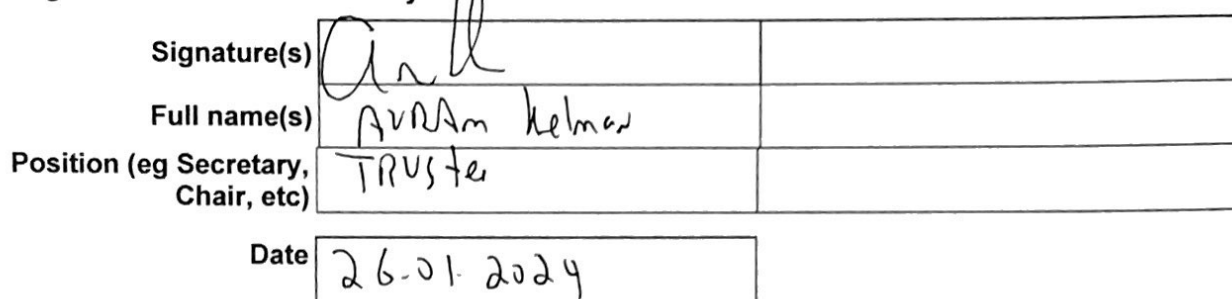 Signature(s)
Full name(s) AVRAm Kelman
Position (eg Secretary, TRUStee
Chair, etc)
Date 26-01-2024